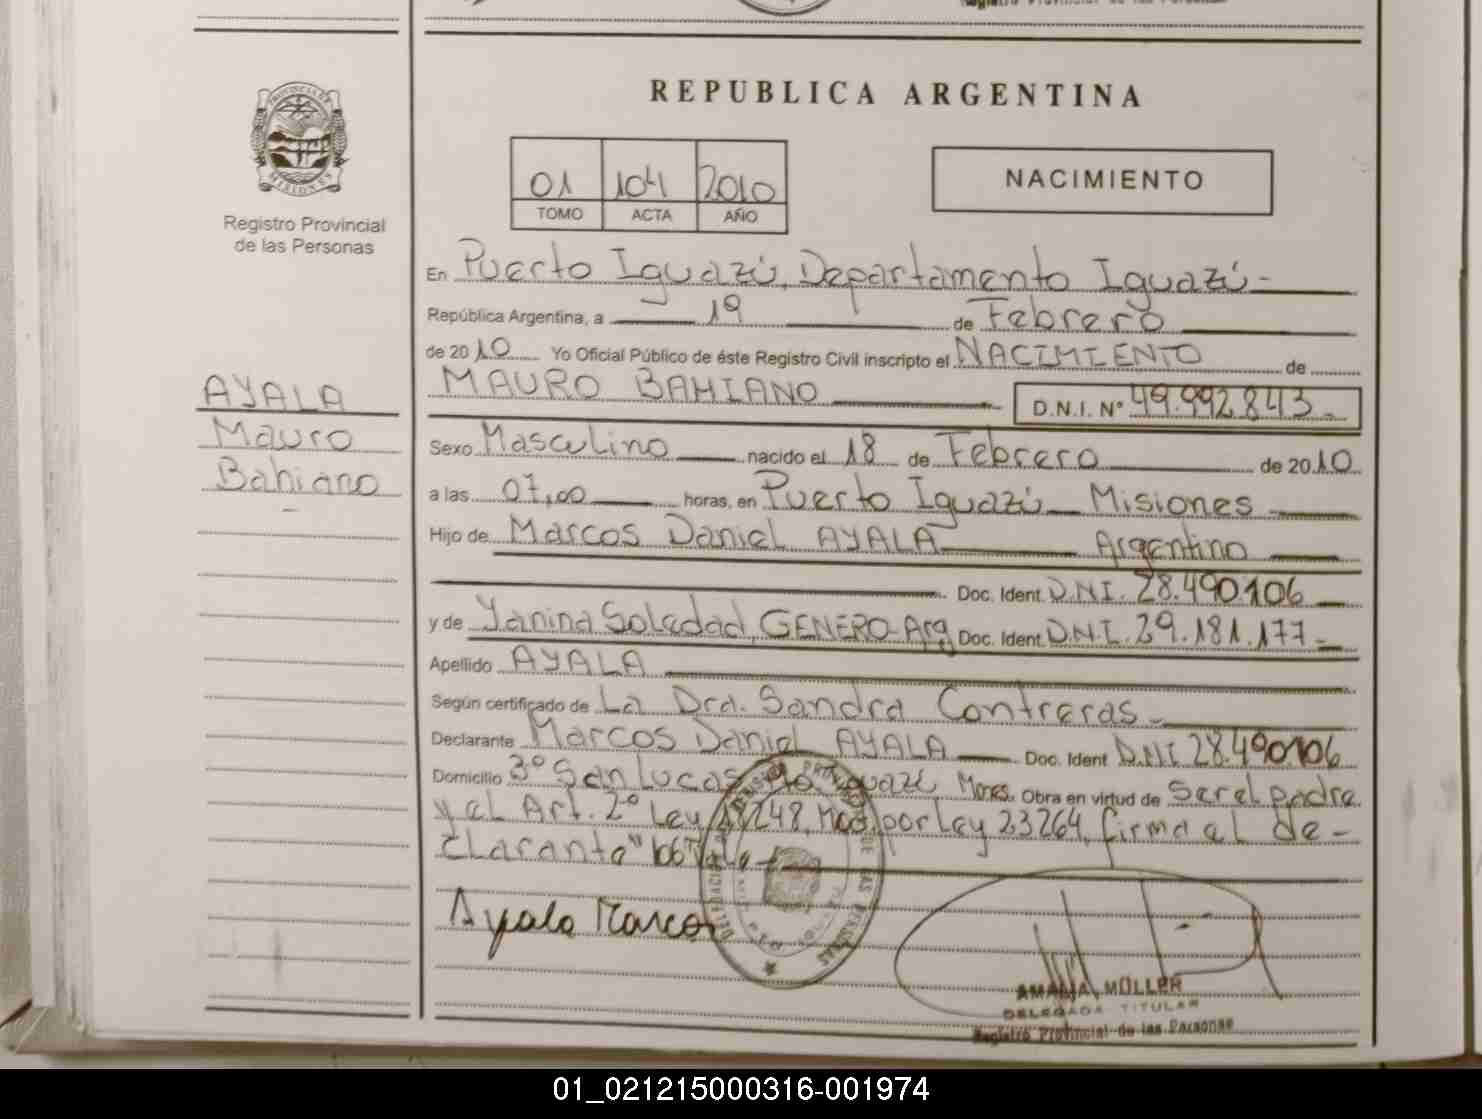 Registro Provincial de las Personas
REPUBLICA ARGENTINA
PROVINCIA DE
MISIONES
Registro Provincial
de las Personas
01 104 2010
TOMO ACTA AÑO
NACIMIENTO
En Puerto Iguazú, Departamento Iguazú-
República Argentina, a 19 de Febrero
de 2010 Yo Oficial Público de éste Registro Civil inscripto el NACIMIENTO de
MAURO BAHIANO D.N.I. Nº 49.992.843-
AYALA
Mauro
Bahiano
Sexo Masculino nacido el 18 de Febrero de 2010
a las 07,00 horas, en Puerto Iguazú Misiones
Hijo de Marcos Daniel AYALA Argentino
Doc. Ident. D.N.I. 28.490.106
y de Yanina Soledad, GENERO-Arg Doc. Ident. D.N.I. 29.181.177-
Apellido AYALA
Según certificado de La Dra. Sandra Contreras-
Declarante Marcos Daniel AYALA Doc. Ident D.N.I. 28.490.106
Domicilio 3º San Lucas Pto Iguazú Mnes. Obra en virtud de Ser el padre
y al Art. 2º Ley 18248, Mod. por Ley 23264, firma el de-
clarante "106" Vale-
Ayala Marcos
DELEGACION
DE LAS PERSONAS
AMALIA MÜLLER
DELEGADA TITULAR
Registro Provincial de las Personas
01_021215000316-001974